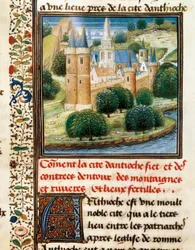 a vne lieue pres de la cite danthioche
Comẽt la cite dantioche siet et des
contrees dentour des montaignes
et riuieres et lieux fertilles
Anthioche est vne moult
noble cite qui a le tiers
lieu entre les patriarches
apres leglise de romme